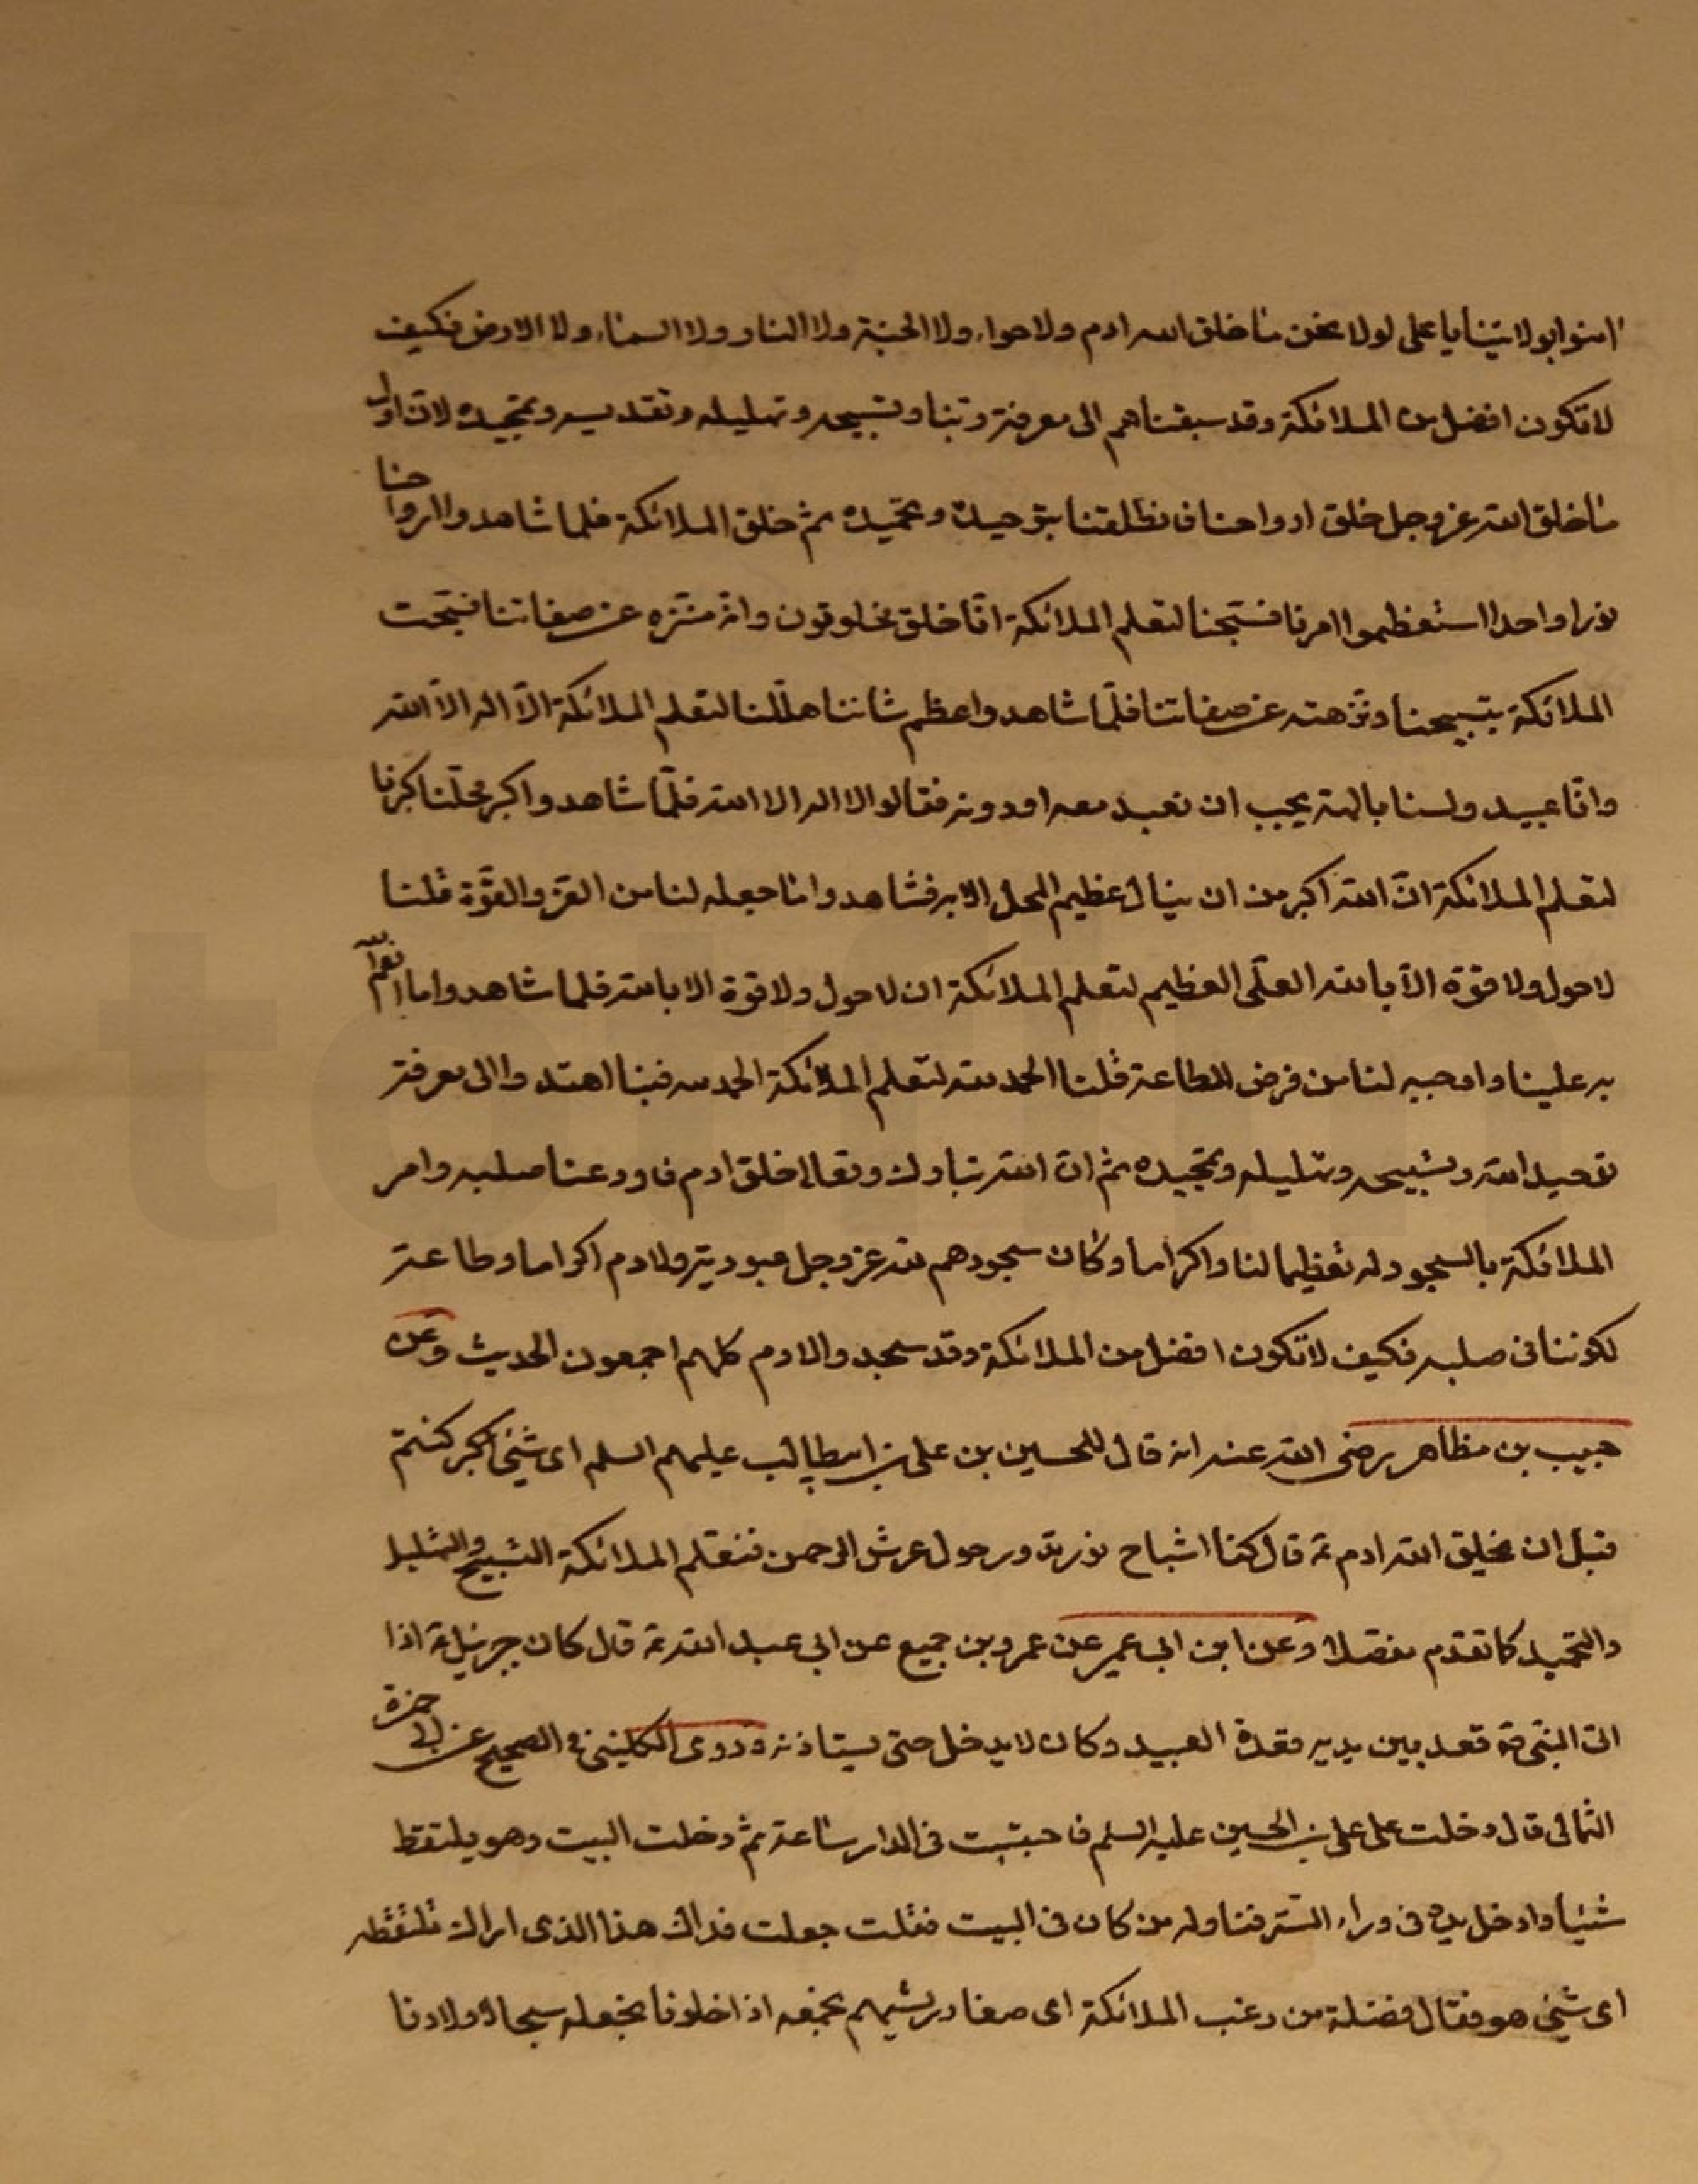 امنوا بولايتنا يا على لولا نحن ما خلق الله ادم ولا حواء ولا الجنة ولا النار ولا السماء ولا الارض فكيف
لا نكون افضل من الملائكة وقد سبقناهم الى معرفة ربنا وتسبيحه وتهليله وتقديسه وتمجيده لان اول
ما خلق الله عز وجل خلق ارواحنا فانطلقنا بتوحيده وتحميده ثم خلق الملائكة فلما شاهدوا ارواحنا
نورا واحدا استعظموا امرنا فسبحنا لتعلم الملائكة انا خلق مخلوقون وانه منزه عن صفاتنا فسبحت
الملائكة بتسبيحنا ونزهته عن صفاتنا فلما شاهدوا عظم شاننا هللنا لتعلم الملائكة الا اله الا الله
وانا عبيد ولسنا بالهة يجب ان نعبد معه او دونه فقالوا لا اله الا الله فلما شاهدوا كبر محلنا كبرنا
لتعلم الملائكة ان الله اكبر من ان ينال عظيم المحل الا به فشاهدوا ما جعله لنا من العز والقوة قلنا
لا حول ولا قوة الا بالله العلى العظيم لتعلم الملائكة ان لا حول ولا قوة الا بالله فلما شاهدوا ما انعم الله
به علينا واوجبه لنا من فرض الطاعة قلنا الحمد لله لتعلم الملائكة الحمد لله فبنا اهتدوا الى معرفة
توحيد الله وتسبيحه وتهليله وتمجيده ثم ان الله تبارك وتعالى خلق ادم فاودعنا صلبه وامر
الملائكة بالسجود له تعظيما لنا واكراما وكان سجودهم لله عز وجل عبودية ولادم اكراما وطاعة
لكوننا فى صلبه فكيف لا نكون افضل من الملائكة وقد سجدوا لادم كلهم اجمعون الحديث وعن
حبيب بن مظاهر رضى الله عنه انه قال للحسين بن على بن ابيطالب عليهم السلم اى شئ كنتم
قبل ان يخلق الله ادم ع قال كنا اشباح نور ندور حول عرش الرحمن فنعلم الملائكة التسبيح والتهليل
والتحميد كما تقدم مفصلا وعن ابن ابى عمير عن عمرو بن جميع عن ابى عبد الله ع قال كان جبرئيل ع اذا
اتى النبى ص قعد بين يديه قعدة العبيد وكان لا يدخل حتى يستاذنه وروى الكلينى فى الصحيح عن ابى حمزة
الثمالى قال دخلت على على بن الحسين عليه السلم فاحتبست فى الدار ساعة ثم دخلت البيت وهو يلتقط
شيئا وادخل يده فى وراء الستر فناوله من كان فى البيت فقلت جعلت فداك هذا الذى اراك تلتقطه
اى شئ هو فقال فضلة من زغب الملائكة اى صغار ريشهم نجمعه اذا خلونا نجعله سبحا لاولادنا